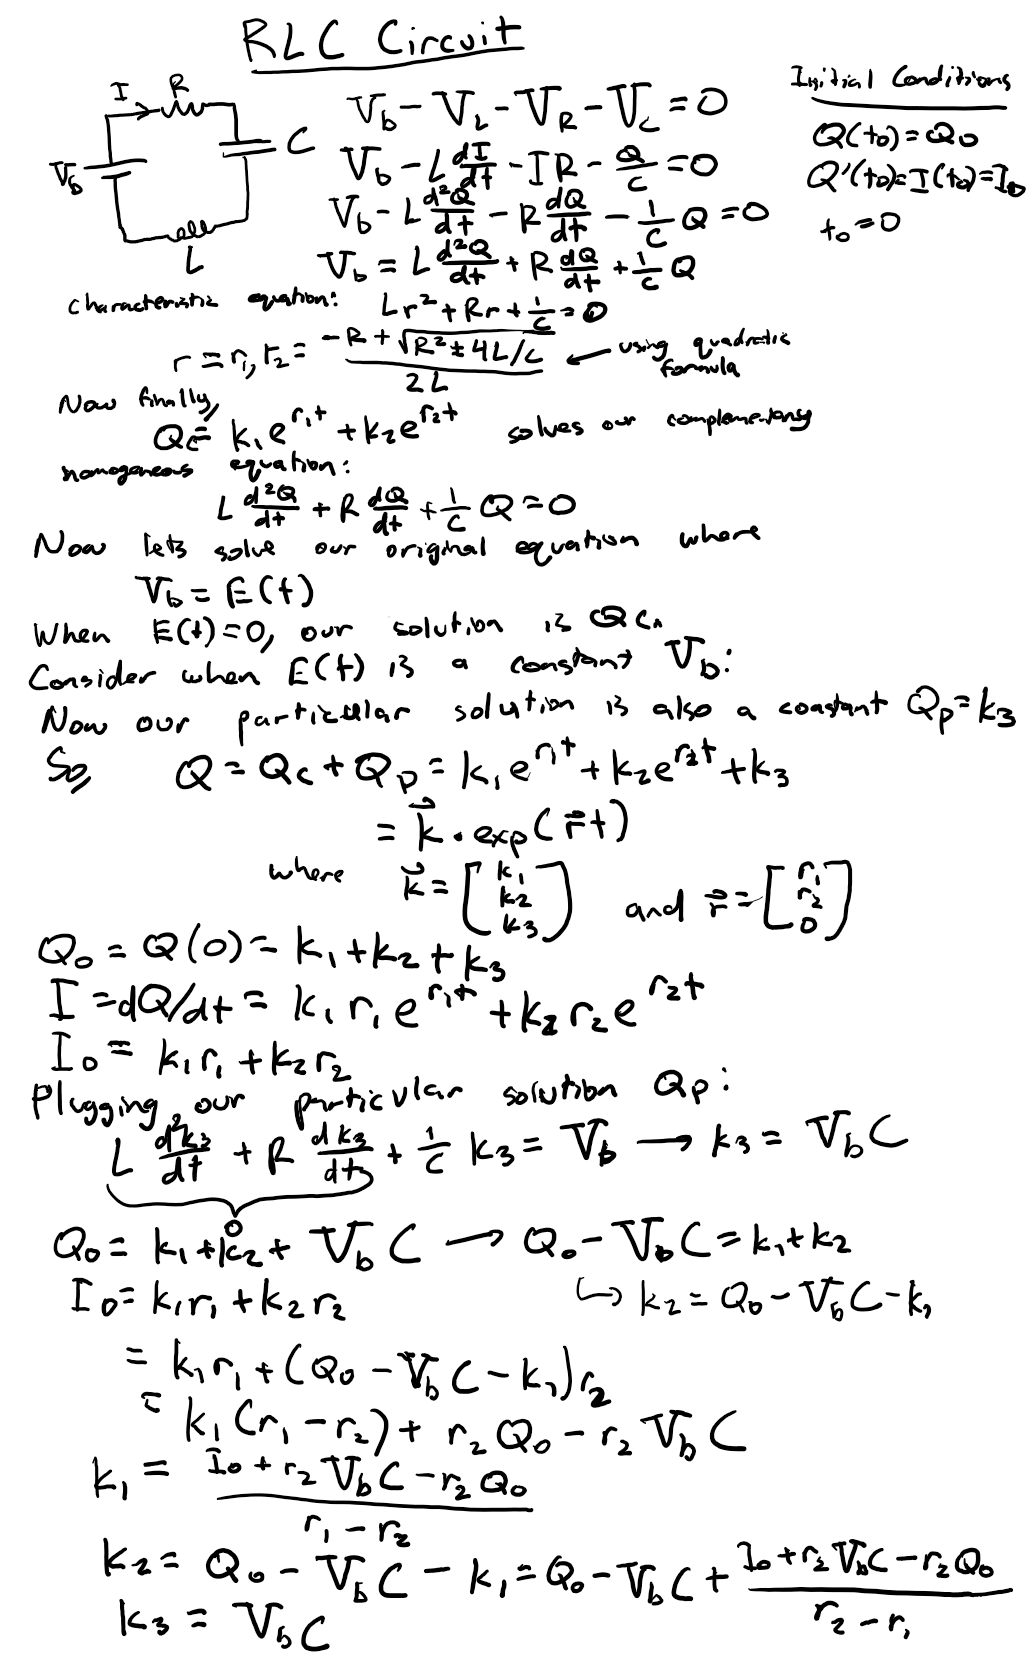 RLC Circuit
I R
C
V_b
L
Initial Conditions
Q(t_0)=Q_0
Q'(t_0)=I(t_0)=I_0
t_0=0
V_b - V_L - V_R - V_C = 0
V_b - L dI/dt - IR - Q/C = 0
V_b - L d²Q/dt - R dQ/dt - 1/C Q = 0
V_b = L d²Q/dt + R dQ/dt + 1/C Q
characteristic equation: Lr² + Rr + 1/C = 0
r = r_1, r_2 = (-R + √(R² ± 4L/C))/2L ← using quadratic formula
Now finally,
Q_c = k_1 e^{r_1 t} + k_2 e^{r_2 t} solves our complementary
homogeneous equation:
L d²Q/dt + R dQ/dt + 1/C Q = 0
Now lets solve our original equation where
V_b = E(t)
When E(t)=0, our solution is Q_c.
Consider when E(t) is a constant V_b:
Now our particular solution is also a constant Q_p = k_3
So, Q = Q_c + Q_p = k_1 e^{r_1 t} + k_2 e^{r_2 t} + k_3
= k⃗ · exp(r⃗t)
where k⃗ = [k_1 k_2 k_3] and r⃗ = [r_1 r_2 0]
Q_0 = Q(0) = k_1 + k_2 + k_3
I = dQ/dt = k_1 r_1 e^{r_1 t} + k_2 r_2 e^{r_2 t}
I_0 = k_1 r_1 + k_2 r_2
Plugging our particular solution Q_p:
L d²k_3/dt + R dk_3/dt + 1/C k_3 = V_b → k_3 = V_b C
0
Q_0 = k_1 + k_2 + V_b C → Q_0 - V_b C = k_1 + k_2
I_0 = k_1 r_1 + k_2 r_2 ↪ k_2 = Q_0 - V_b C - k_1
= k_1 r_1 + (Q_0 - V_b C - k_1) r_2
= k_1 (r_1 - r_2) + r_2 Q_0 - r_2 V_b C
k_1 = (I_0 + r_2 V_b C - r_2 Q_0)/(r_1 - r_2)
k_2 = Q_0 - V_b C - k_1 = Q_0 - V_b C + (I_0 + r_2 V_b C - r_2 Q_0)/(r_2 - r_1)
k_3 = V_b C